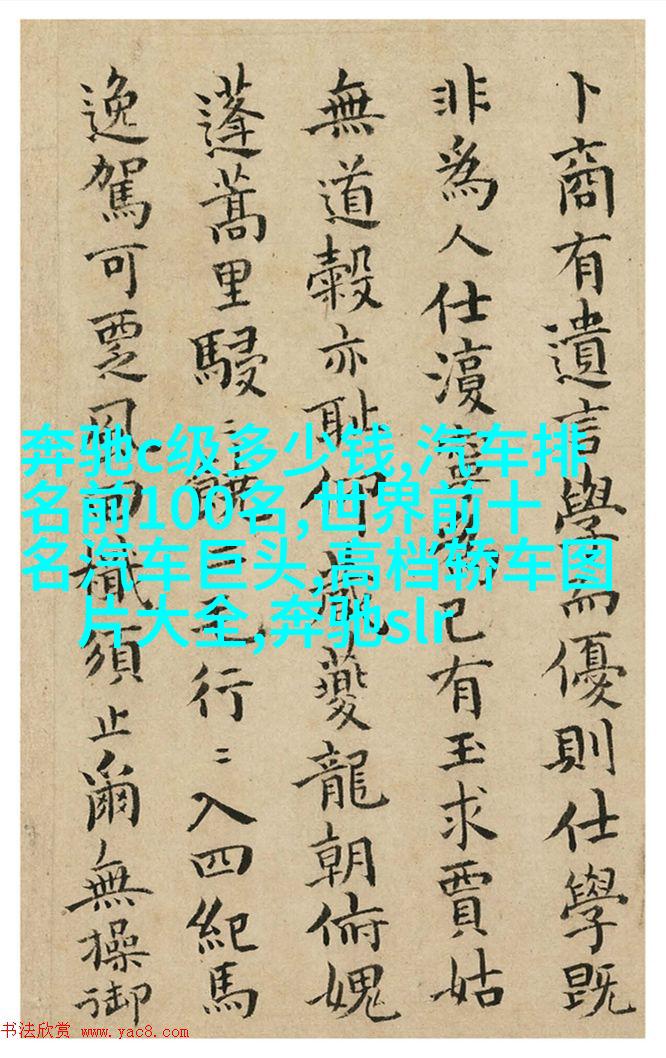 卜商有遺言學而優則仕學既
非為人仕寧己有玉求賈姑
無道榖亦恥仰夔龍朝俯媿
蓬蒿里駸〻饒二毛行〻入四紀馬
逸駕可覂須止爾無操御
奔驰c级多少钱,汽车排
名前100名,世界前十
名汽车巨头,高档轿车图
片大全,奔驰slr
书法欣赏 www.yac8.com